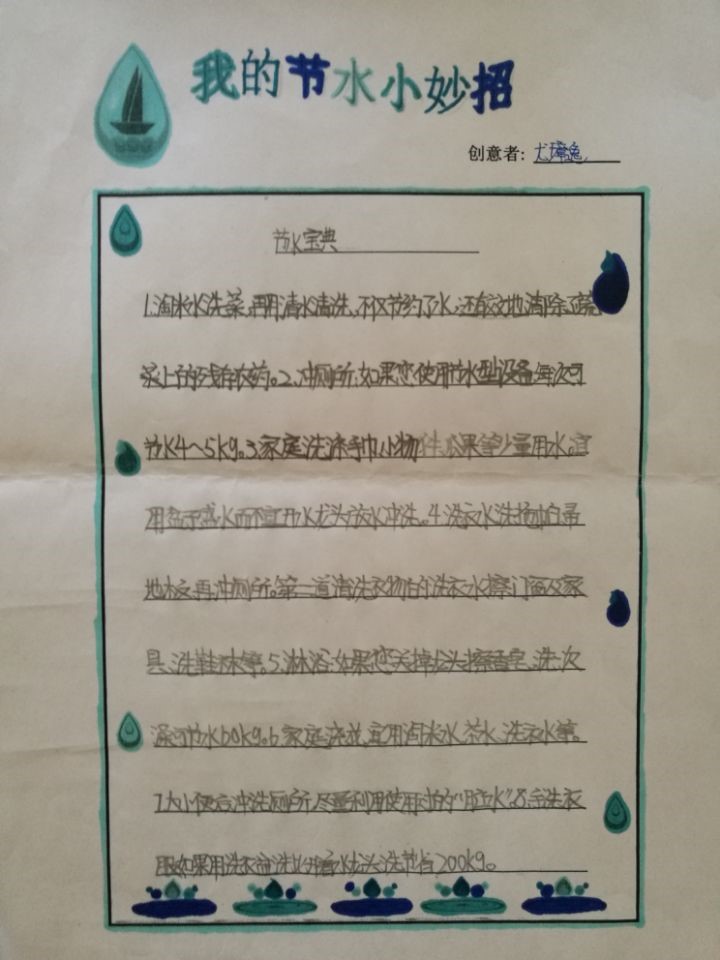 我的节水小妙招
创意者:
节水宝典
1.淘米水洗菜,再用清水清洗,不仅节约了水,还有效地清除了蔬
菜上的残存农药。2.冲厕所:如果您使用节水型设备,每次可
节水4~5kg。3.家庭洗涤手巾、小物件、瓜果等少量用水。宜
用盆子盛水而不宜开水龙头放水冲洗。4.洗衣水洗拖帕、帚
地板、再冲厕所。第二道清洗衣物的洗衣水擦门窗及家
具、洗鞋袜等。5.淋浴:如果您关掉龙头擦香皂,洗一次
澡可节水60kg。6.家庭浇花,宜用淘米水、茶水、洗衣水等。
7.大小便后冲洗厕所,尽量利用使用过的“脏水”。8.手洗衣
服如果用洗衣盆洗比开着水龙头洗节省200kg。